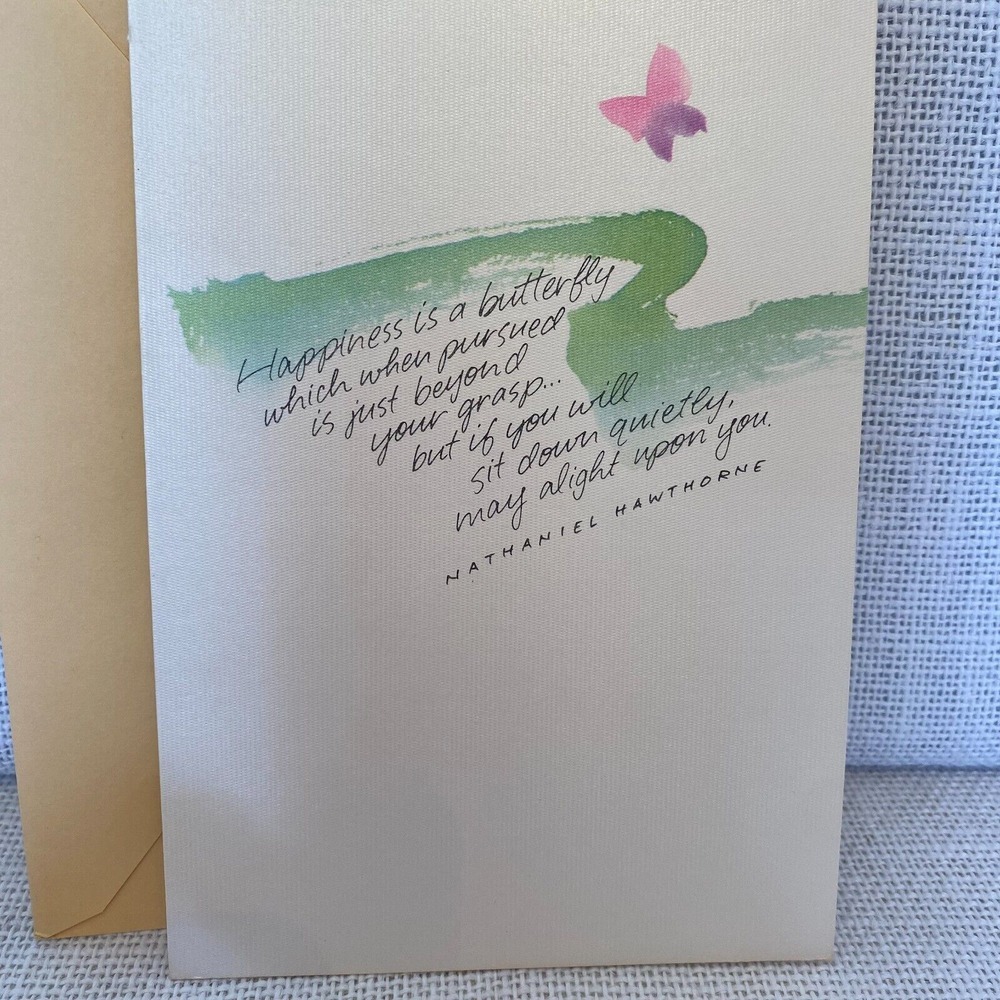 Happiness is a butterfly
which when pursued
is just beyond
your grasp...
but if you will
sit down quietly,
may alight upon you.
NATHANIEL HAWTHORNE